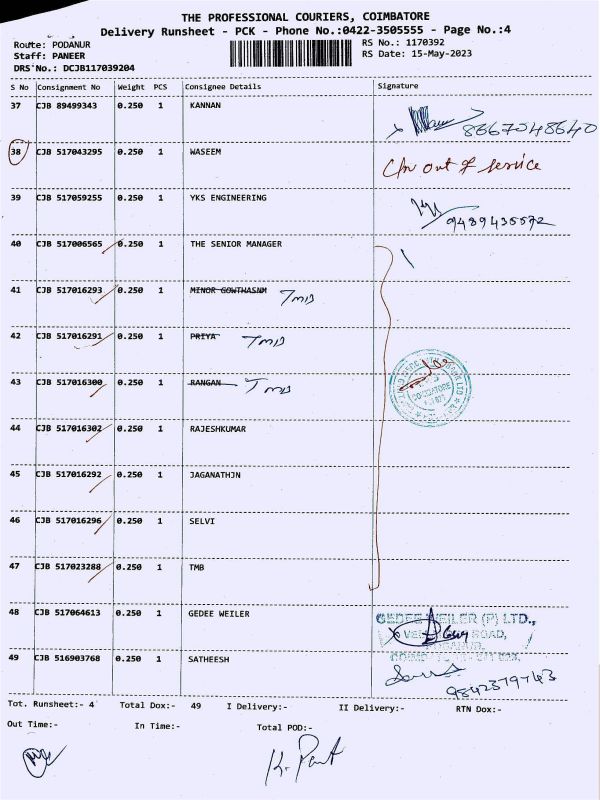 THE PROFESSIONAL COURIERS, COIMBATORE
Delivery Runsheet - PCK - Phone No.:0422-3505555 - Page No.:4
Route: PODANUR
RS No.: 1170392
Staff: PANEER
RS Date: 15-May-2023
DRS No.: DCJB117039204
S No Consignment No Weight PCS Consignee Details Signature
37 CJB 89499343 0.250 1 KANNAN
8667048640
38 CJB 517043295 0.250 1 WASEEM C/n out of service
39 CJB 517059255 0.250 1 YKS ENGINEERING
9489435572
40 CJB 517006565 0.250 1 THE SENIOR MANAGER
41 CJB 517016293 0.250 1 MINOR GOWTHASNM TMB
42 CJB 517016291 0.250 1 PRIYA TMB
43 CJB 517016300 0.250 1 RANGAN TMB
COIMBATORE
44 CJB 517016302 0.250 1 RAJESHKUMAR
45 CJB 517016292 0.250 1 JAGANATHJN
46 CJB 517016296 0.250 1 SELVI
47 CJB 517023288 0.250 1 TMB
48 CJB 517064613 0.250 1 GEDEE WEILER GEDEE WEILER (P) LTD.,
ROAD,
49 CJB 516903768 0.250 1 SATHEESH
9842379743
Tot. Runsheet:- 4 Total Dox:- 49 I Delivery:- II Delivery:- RTN Dox:-
Out Time:- In Time:- Total POD:-